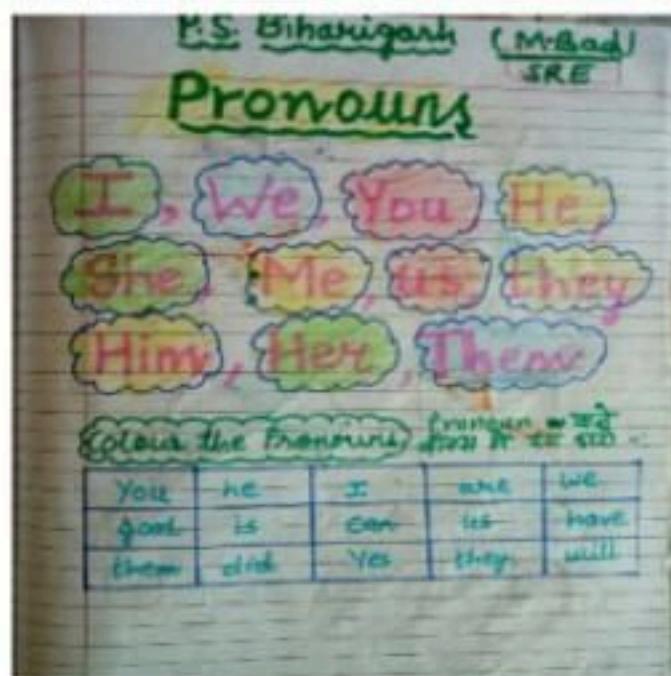 P.S. Biharigarh (M.Bad)
SRE
Pronouns
I, We, You, He,
She, Me, us, they
Him, Her, Them
Colour the Pronouns Pronoun वाले में रंग भरो
You he I are we
good is can us have
them did Yes they will